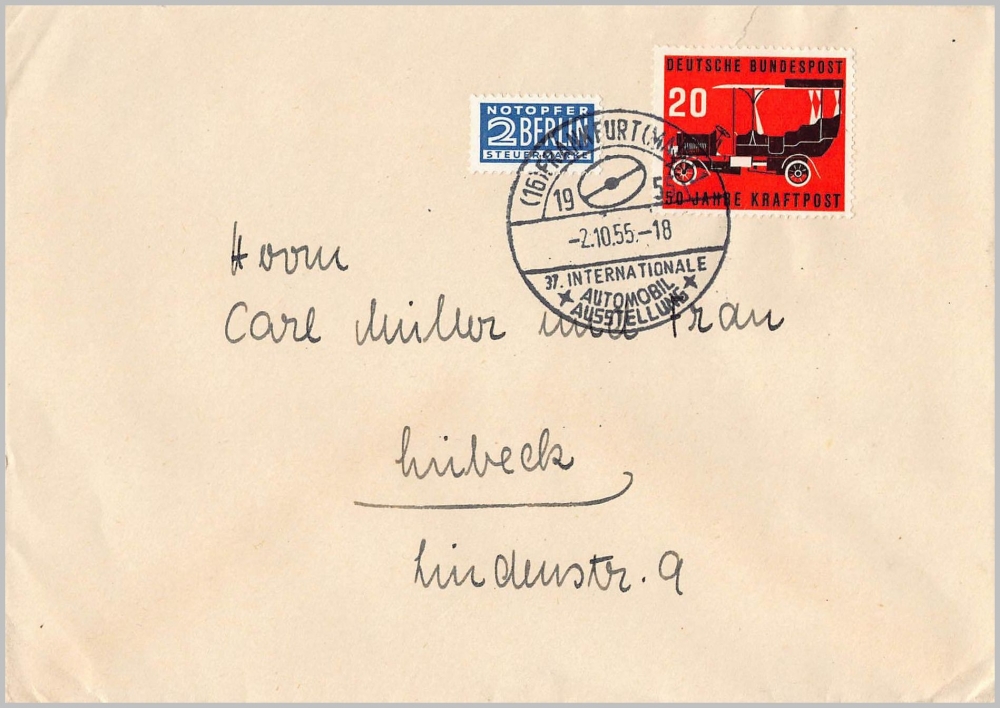 DEUTSCHE BUNDESPOST
20
50 JAHRE KRAFTPOST
NOTOPFER
2 BERLIN
STEUERMARKE
(16) FRANKFURT (MAIN)
19 55
-2.10.55.-18
37. INTERNATIONALE
AUTOMOBIL
AUSSTELLUNG
Herrn
Carl Müller und Frau
Lübeck
Lindenstr. 9